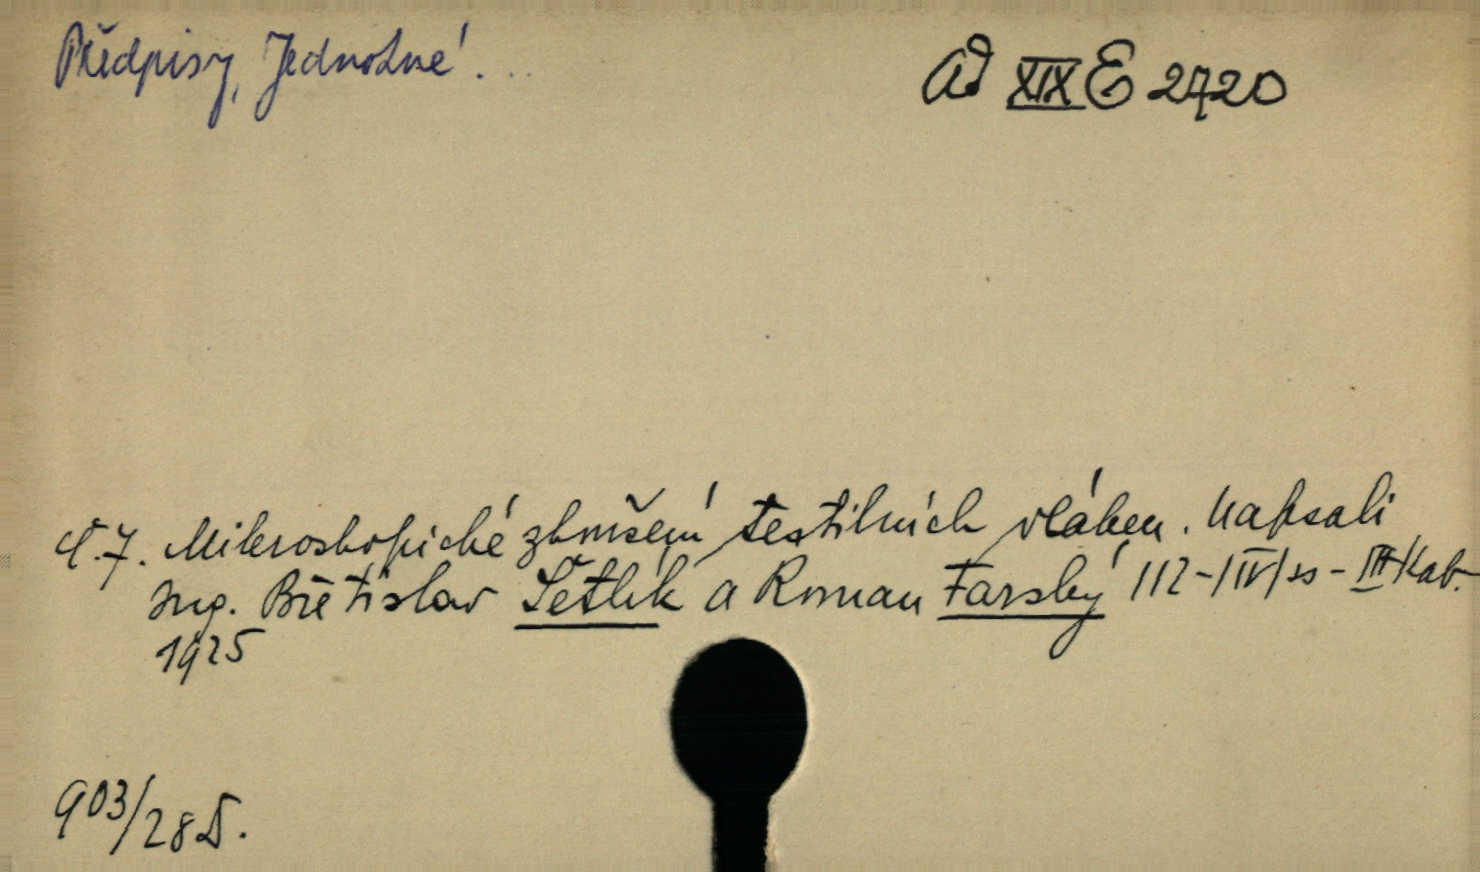 Předpisy, Jednotné...
ad XIX E 2720
Č.7. Mikroskopické zkoušení textilních vláken. Napsali
Ing. Břetislav Šetlík a Roman Farský 112-/IV/ss-III/Kab.
1925
903/28 D.